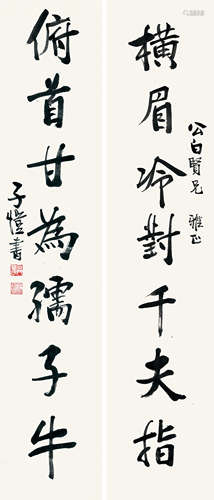 橫眉冷對千夫指
公白賢兄 雅正
俯首甘為孺子牛
子愷書